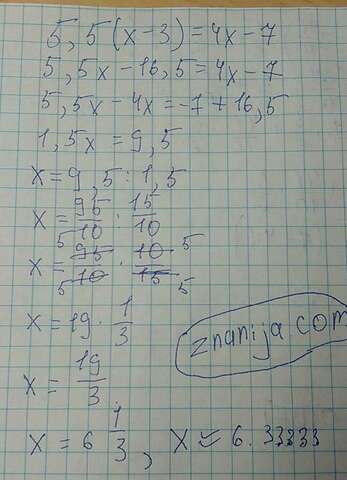 5,5(x-3)=4x-7
5,5x-16,5=4x-7
5,5x-4x=-7+16,5
1,5x=9,5
x=9,5:1,5
x=95/10:15/10
x=95/10·10/15
5 5 5 5
x=19·1/3
x=19/3
x=6 1/3, x≈6.33333
znanija com